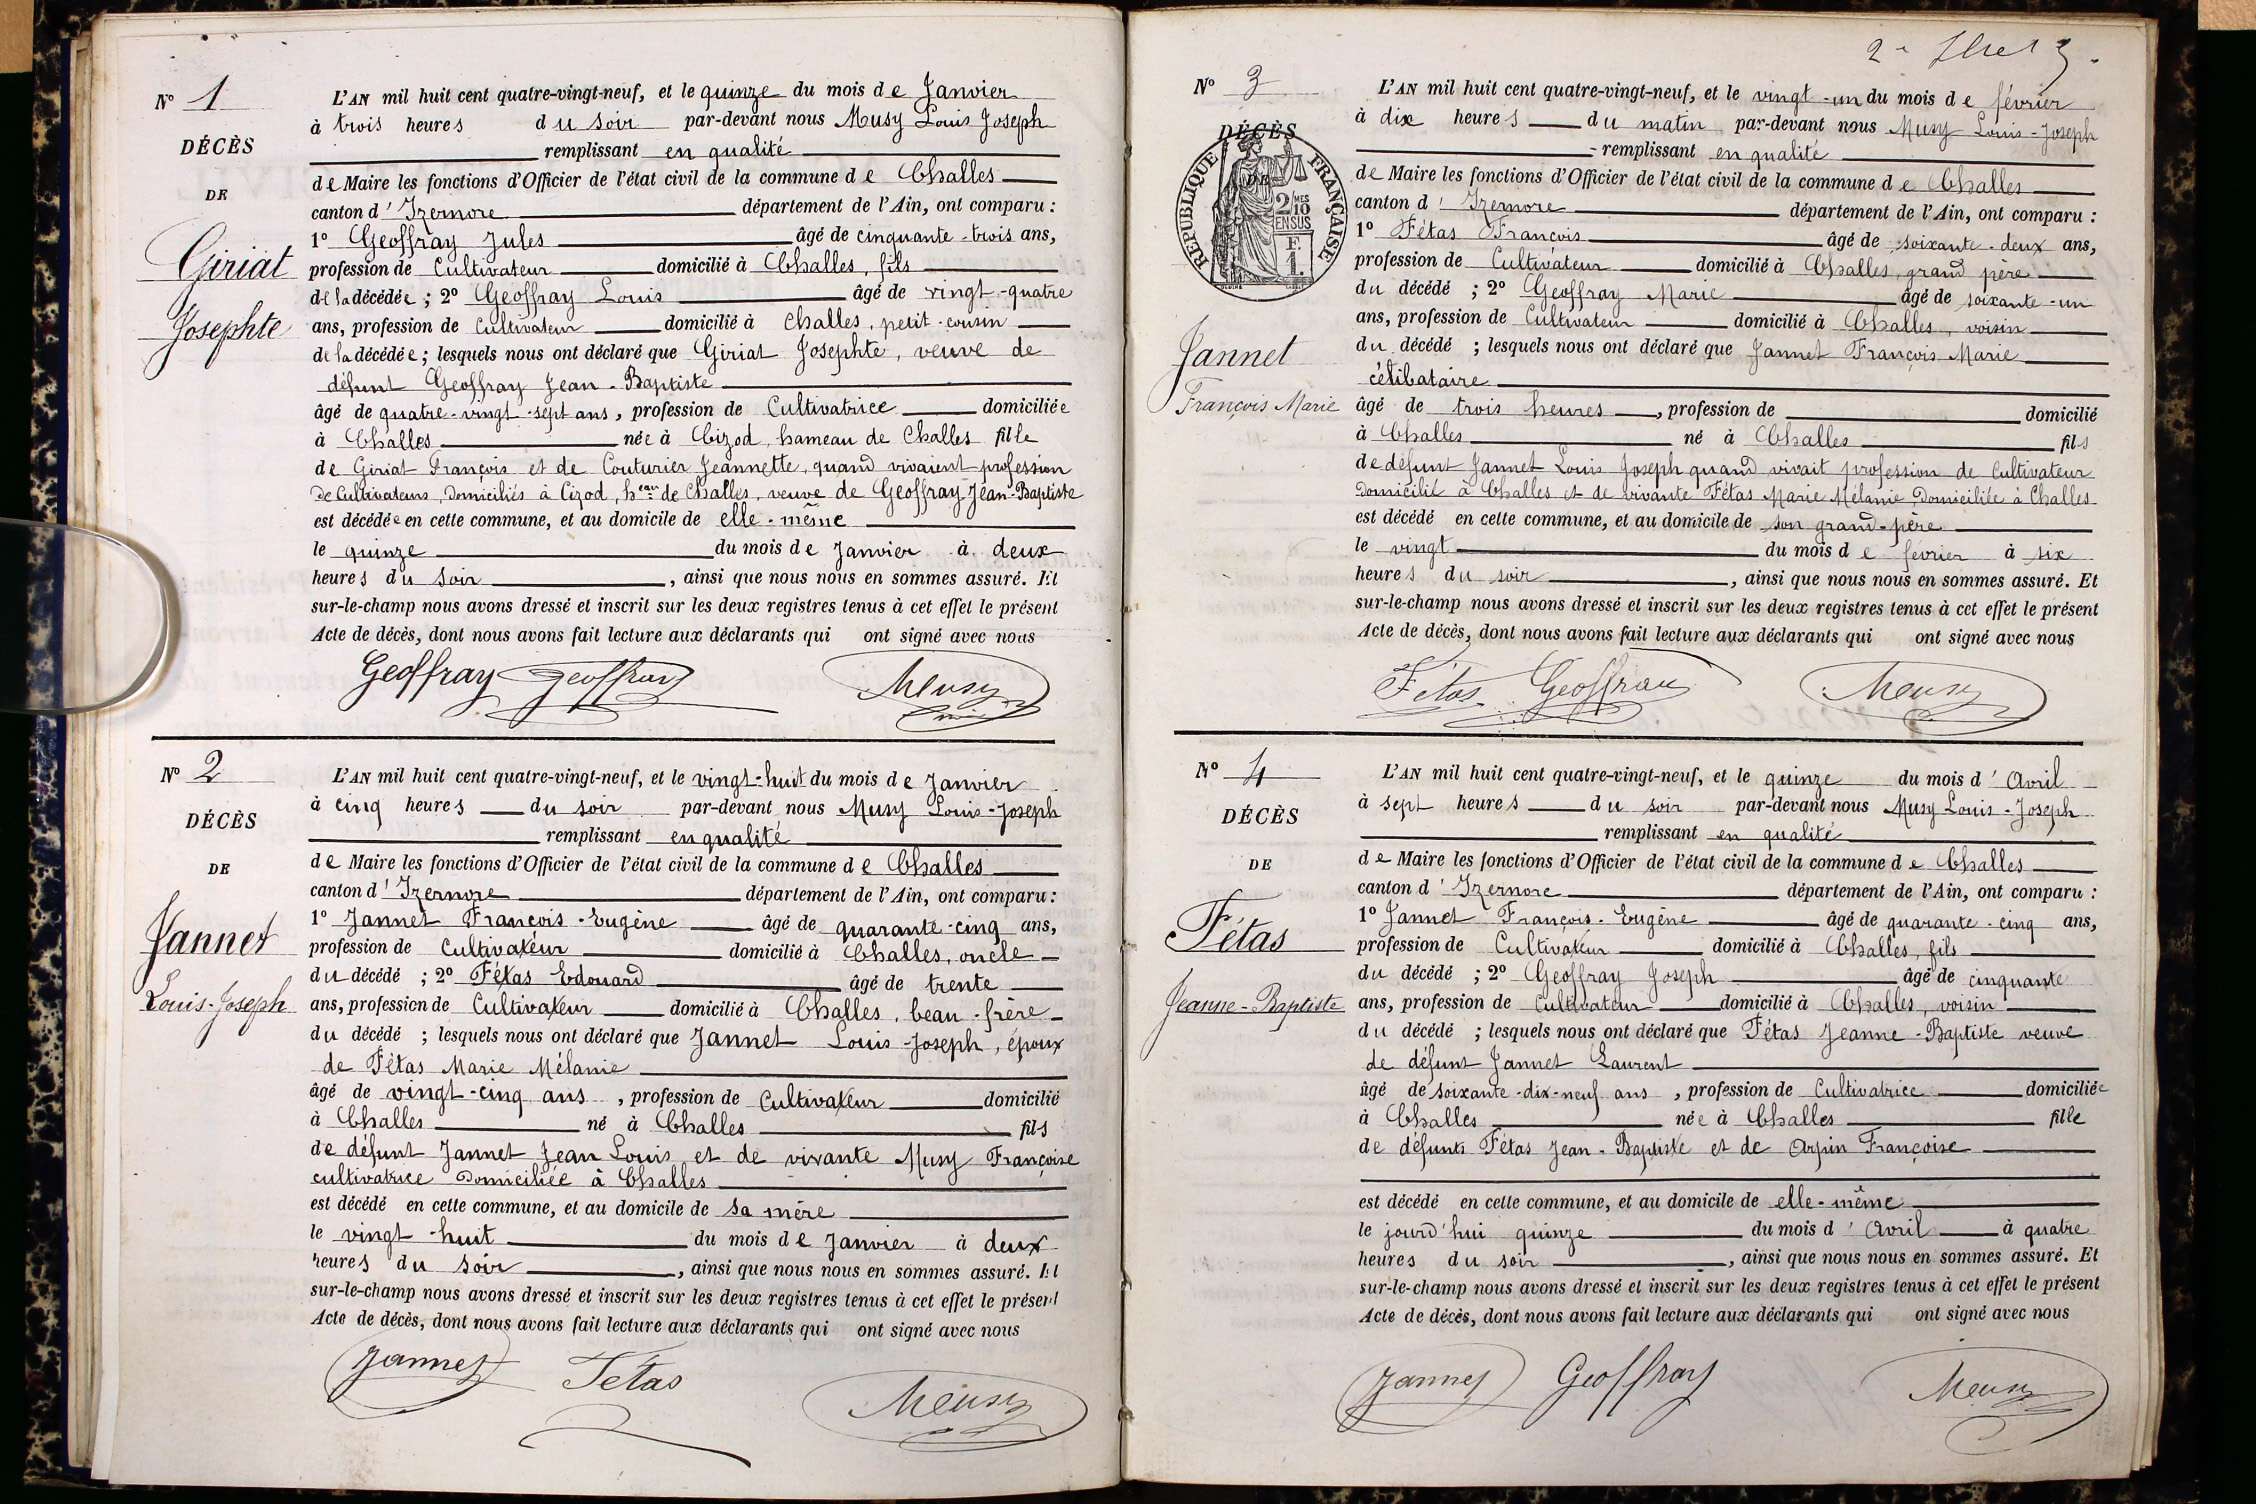 N° 1
DÉCÈS
DE
Giriat
Josephte
L'AN mil huit cent quatre-vingt-neuf, et le quinze du mois de Janvier
à trois heures du soir par-devant nous Musy Louis Joseph
remplissant en qualité
de Maire les fonctions d'Officier de l'état civil de la commune de Challes
canton d'Izernore département de l'Ain, ont comparu :
1° Geoffray Jules âgé de cinquante-trois ans,
profession de Cultivateur domicilié à Challes, fils
de la décédée ; 2° Geoffray Louis âgé de vingt-quatre
ans, profession de Cultivateur domicilié à Challes, petit-cousin
de la décédée ; lesquels nous ont déclaré que Giriat Josephte, veuve de
défunt Geoffray Jean-Baptiste
âgé de quatre-vingt-sept ans, profession de Cultivatrice domiciliée
à Challes née à Cizod, hameau de Challes fille
de Giriat François et de Couturier Jeannette, quand vivaient profession
de Cultivateurs, domiciliés à Cizod, heau de Challes, veuve de Geoffray Jean-Baptiste
est décédée en cette commune, et au domicile de elle-même
le quinze du mois de Janvier à deux
heures du soir, ainsi que nous nous en sommes assuré. Et
sur-le-champ nous avons dressé et inscrit sur les deux registres tenus à cet effet le présent
Acte de décès, dont nous avons fait lecture aux déclarants qui ont signé avec nous
Geoffray Geoffray Meusy
N° 2
DÉCÈS
DE
Jannet
Louis-Joseph
L'AN mil huit cent quatre-vingt-neuf, et le vingt-huit du mois de Janvier
à cinq heures du soir par-devant nous Musy Louis-Joseph
remplissant en qualité
de Maire les fonctions d'Officier de l'état civil de la commune de Challes
canton d'Izernore département de l'Ain, ont comparu :
1° Jannet François-Eugène âgé de quarante-cinq ans,
profession de Cultivateur domicilié à Challes, oncle
du décédé ; 2° Fétas Edouard âgé de trente
ans, profession de Cultivateur domicilié à Challes, beau-frère
du décédé ; lesquels nous ont déclaré que Jannet Louis-Joseph, époux
de Fétas Marie Mélanie
âgé de vingt-cinq ans, profession de Cultivateur domicilié
à Challes né à Challes fils
de défunt Jannet Jean Louis et de vivante Musy Françoise
cultivatrice domiciliée à Challes
est décédé en cette commune, et au domicile de sa mère
le vingt-huit du mois de Janvier à deux
heures du soir, ainsi que nous nous en sommes assuré. Et
sur-le-champ nous avons dressé et inscrit sur les deux registres tenus à cet effet le présent
Acte de décès, dont nous avons fait lecture aux déclarants qui ont signé avec nous
Jannet Fétas Meusy
N° 3
DÉCÈS
DE
RÉPUBLIQUE FRANÇAISE
2/10 MES
EN SUS
F.
1.
Jannet
François Marie
L'AN mil huit cent quatre-vingt-neuf, et le vingt-un du mois de février
à dix heures du matin par-devant nous Musy Louis-Joseph
remplissant en qualité
de Maire les fonctions d'Officier de l'état civil de la commune de Challes
canton d'Izernore département de l'Ain, ont comparu :
1° Fétas François âgé de soixante-deux ans,
profession de Cultivateur domicilié à Challes, grand père
du décédé ; 2° Geoffray Marie âgé de soixante-un
ans, profession de Cultivateur domicilié à Challes, voisin
du décédé ; lesquels nous ont déclaré que Jannet François Marie
célibataire
âgé de trois heures, profession de domicilié
à Challes né à Challes fils
de défunt Jannet Louis Joseph quand vivait profession de Cultivateur
domicilié à Challes et de vivante Fétas Marie Mélanie domiciliée à Challes
est décédé en cette commune, et au domicile de son grand-père
le vingt du mois de février à six
heures du soir, ainsi que nous nous en sommes assuré. Et
sur-le-champ nous avons dressé et inscrit sur les deux registres tenus à cet effet le présent
Acte de décès, dont nous avons fait lecture aux déclarants qui ont signé avec nous
Fétas Geoffray Meusy
N° 4
DÉCÈS
DE
Fétas
Jeanne-Baptiste
L'AN mil huit cent quatre-vingt-neuf, et le quinze du mois d'Avril
à sept heures du soir par-devant nous Musy Louis-Joseph
remplissant en qualité
de Maire les fonctions d'Officier de l'état civil de la commune de Challes
canton d'Izernore département de l'Ain, ont comparu :
1° Jannet François-Eugène âgé de quarante-cinq ans,
profession de Cultivateur domicilié à Challes, fils
du décédé ; 2° Geoffray Joseph âgé de cinquante
ans, profession de Cultivateur domicilié à Challes, voisin
du décédé ; lesquels nous ont déclaré que Fétas Jeanne-Baptiste veuve
de défunt Jannet Laurent
âgé de soixante-dix-neuf ans, profession de Cultivatrice domiciliée
à Challes née à Challes fille
de défunts Fétas Jean-Baptiste et de Arpin Françoise
est décédé en cette commune, et au domicile de elle-même
le jourd'hui quinze du mois d'Avril à quatre
heures du soir, ainsi que nous nous en sommes assuré. Et
sur-le-champ nous avons dressé et inscrit sur les deux registres tenus à cet effet le présent
Acte de décès, dont nous avons fait lecture aux déclarants qui ont signé avec nous
Jannet Geoffray Meusy